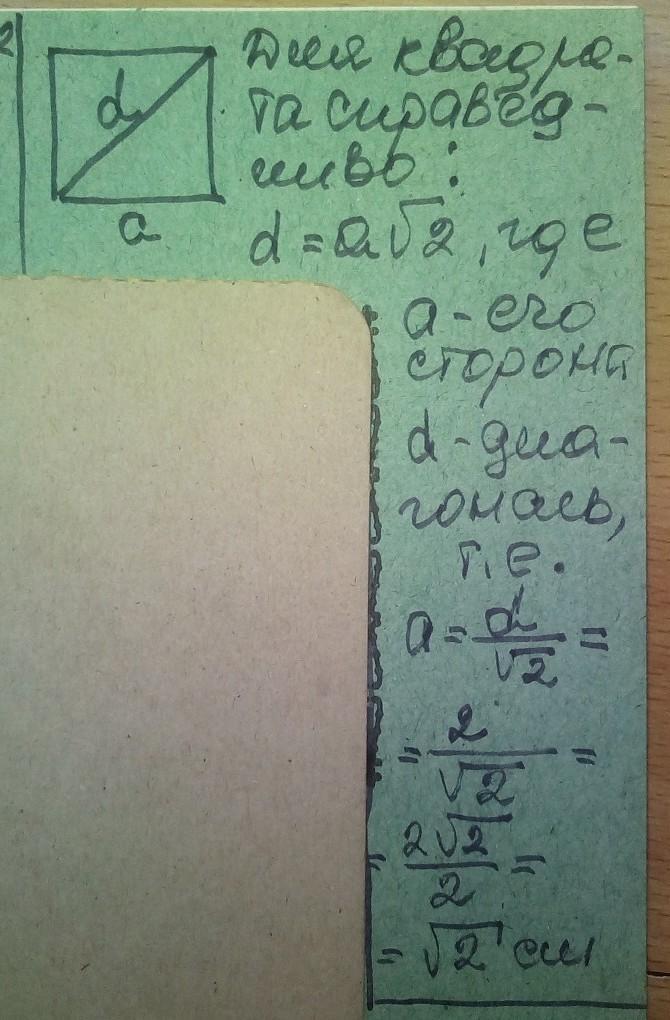 2
d
a
Для квадра-
та справед-
ливо:
d = a√2, где
a - его
сторона
d - диа-
гональ,
т.е.
a = d/√2 =
= 2/√2 =
= 2√2/2 =
= √2 см